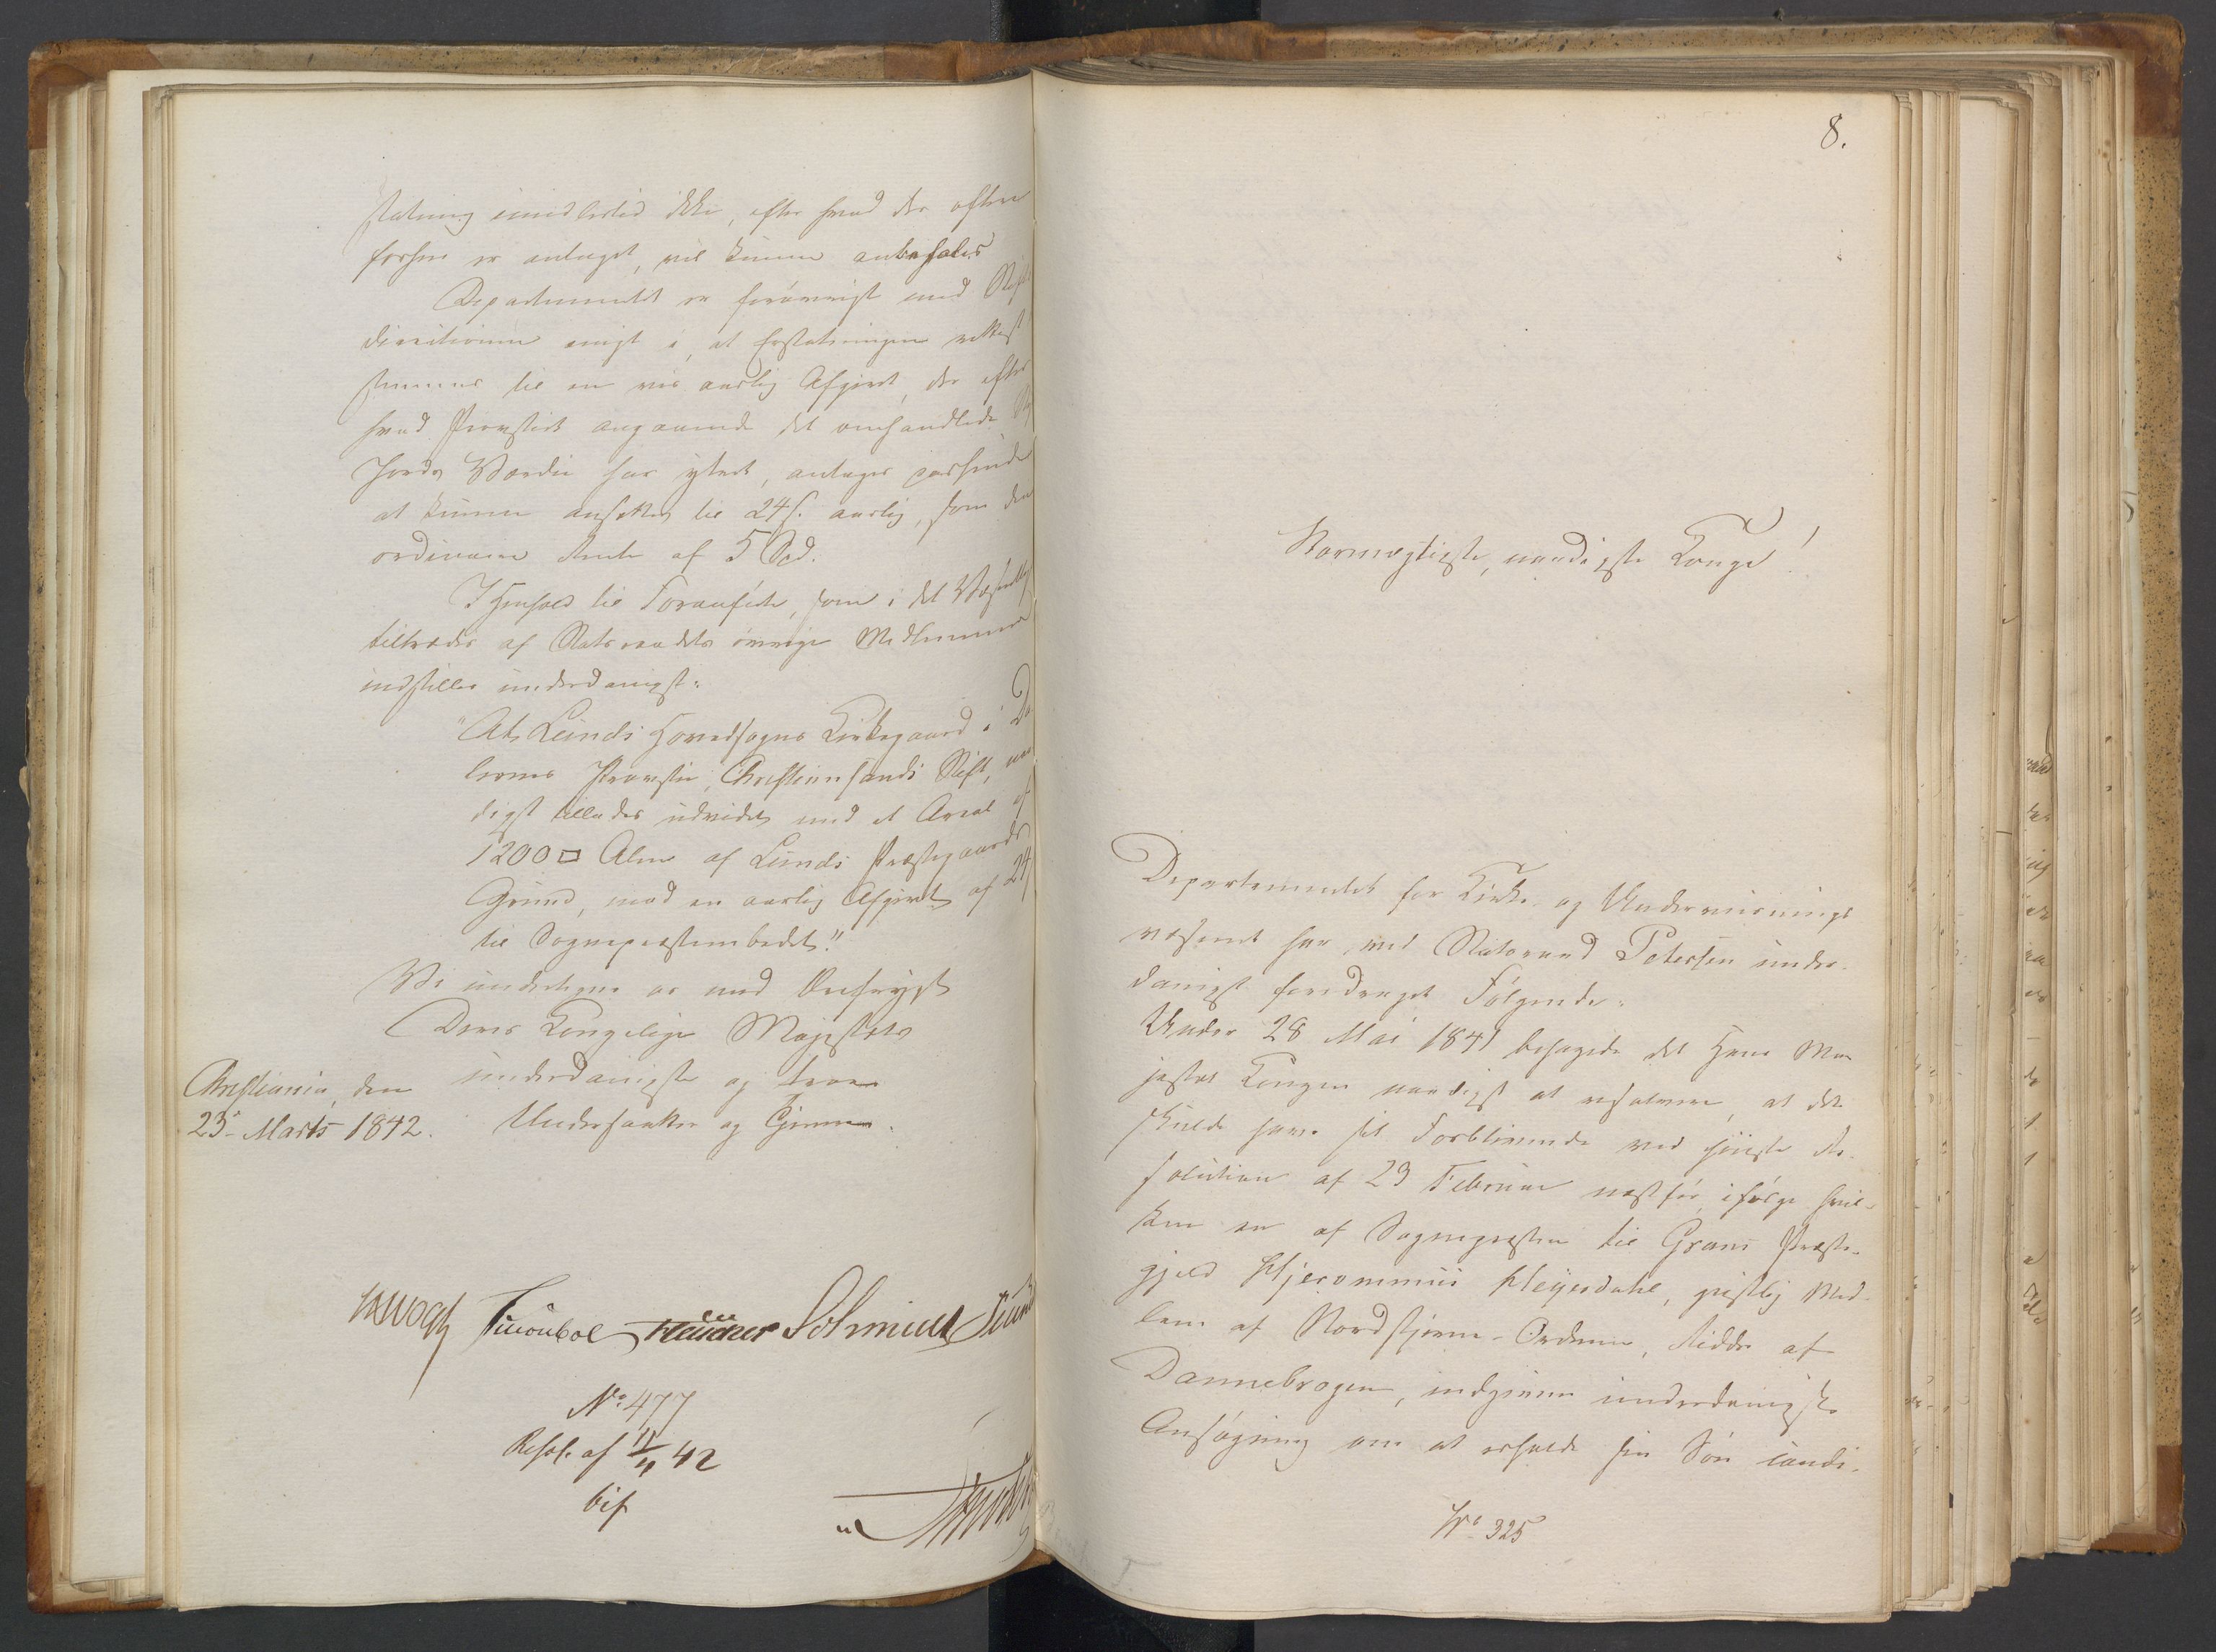 statning imidlertid ikke, efter hvad der oftere
forhen er antaget, vil kunne anbefales
Departementet er forøvrigt med Stifts
directionen enigt i, at Erstatningen rettest
stemmes til en vis aarlig Afgivt, der efter
hvad Provstiet angaaende det omhandlede
Jords Værdie har yttret, antages passende
at kunne ansættes til 24 s. aarlig, som den
ordinaire Rente af 5 Spd.
I Henhold til Foranførte, som i det Væsentlig
tiltrædes af Statsraadets øvrige Medlemmer
indstilles underdanigst:
"At Lunds Hovedsogns Kirkegaard i Da
lernes Provstie, Christianssands Stift, naa
digst tillades udvidet med et Areal af
1200 □ Alen af Lunds Præstegaards
Grund, mod en aarlig Afgivt af 24
til Sognepræsteembedet."
Vi undertegne os med Ærefrygt
Deres Kongelige Majestæts
underdanigste og troe
Undersaatter og Tjenere.
Christiania, den
23de Marts 1842.
Vogt
No 477
Resol. af 11/4 42
bif
8.
Stormægtigste, naadigste Konge!
Departementet for Kirke- og Underviisnings
væsenet har ved Statsraad Petersen under-
danigst foredraget Følgende:
Under 28 Mai 1841 behagede det Hans Ma
jestæt Kongen naadigst at resolvere, at det
skulde have sit Forblivende ved høieste Re-
solution af 23 Februar næstfør, ifølge hvil-
ken en af Sognepræsten til Grans Præste-
gjeld Hjeronimus Heyerdahl, geistlig Med-
lem af Nordstjerne-Ordenen, Ridder af
Dannebrogen, indgiven underdanigst
Ansøgning om at erholde sin Søn candi-
No 325